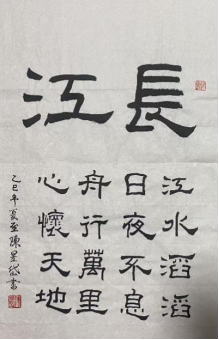 長江
江水滔滔
日夜不息
舟行萬里
心懷天地
乙巳年夏至陳星岱書